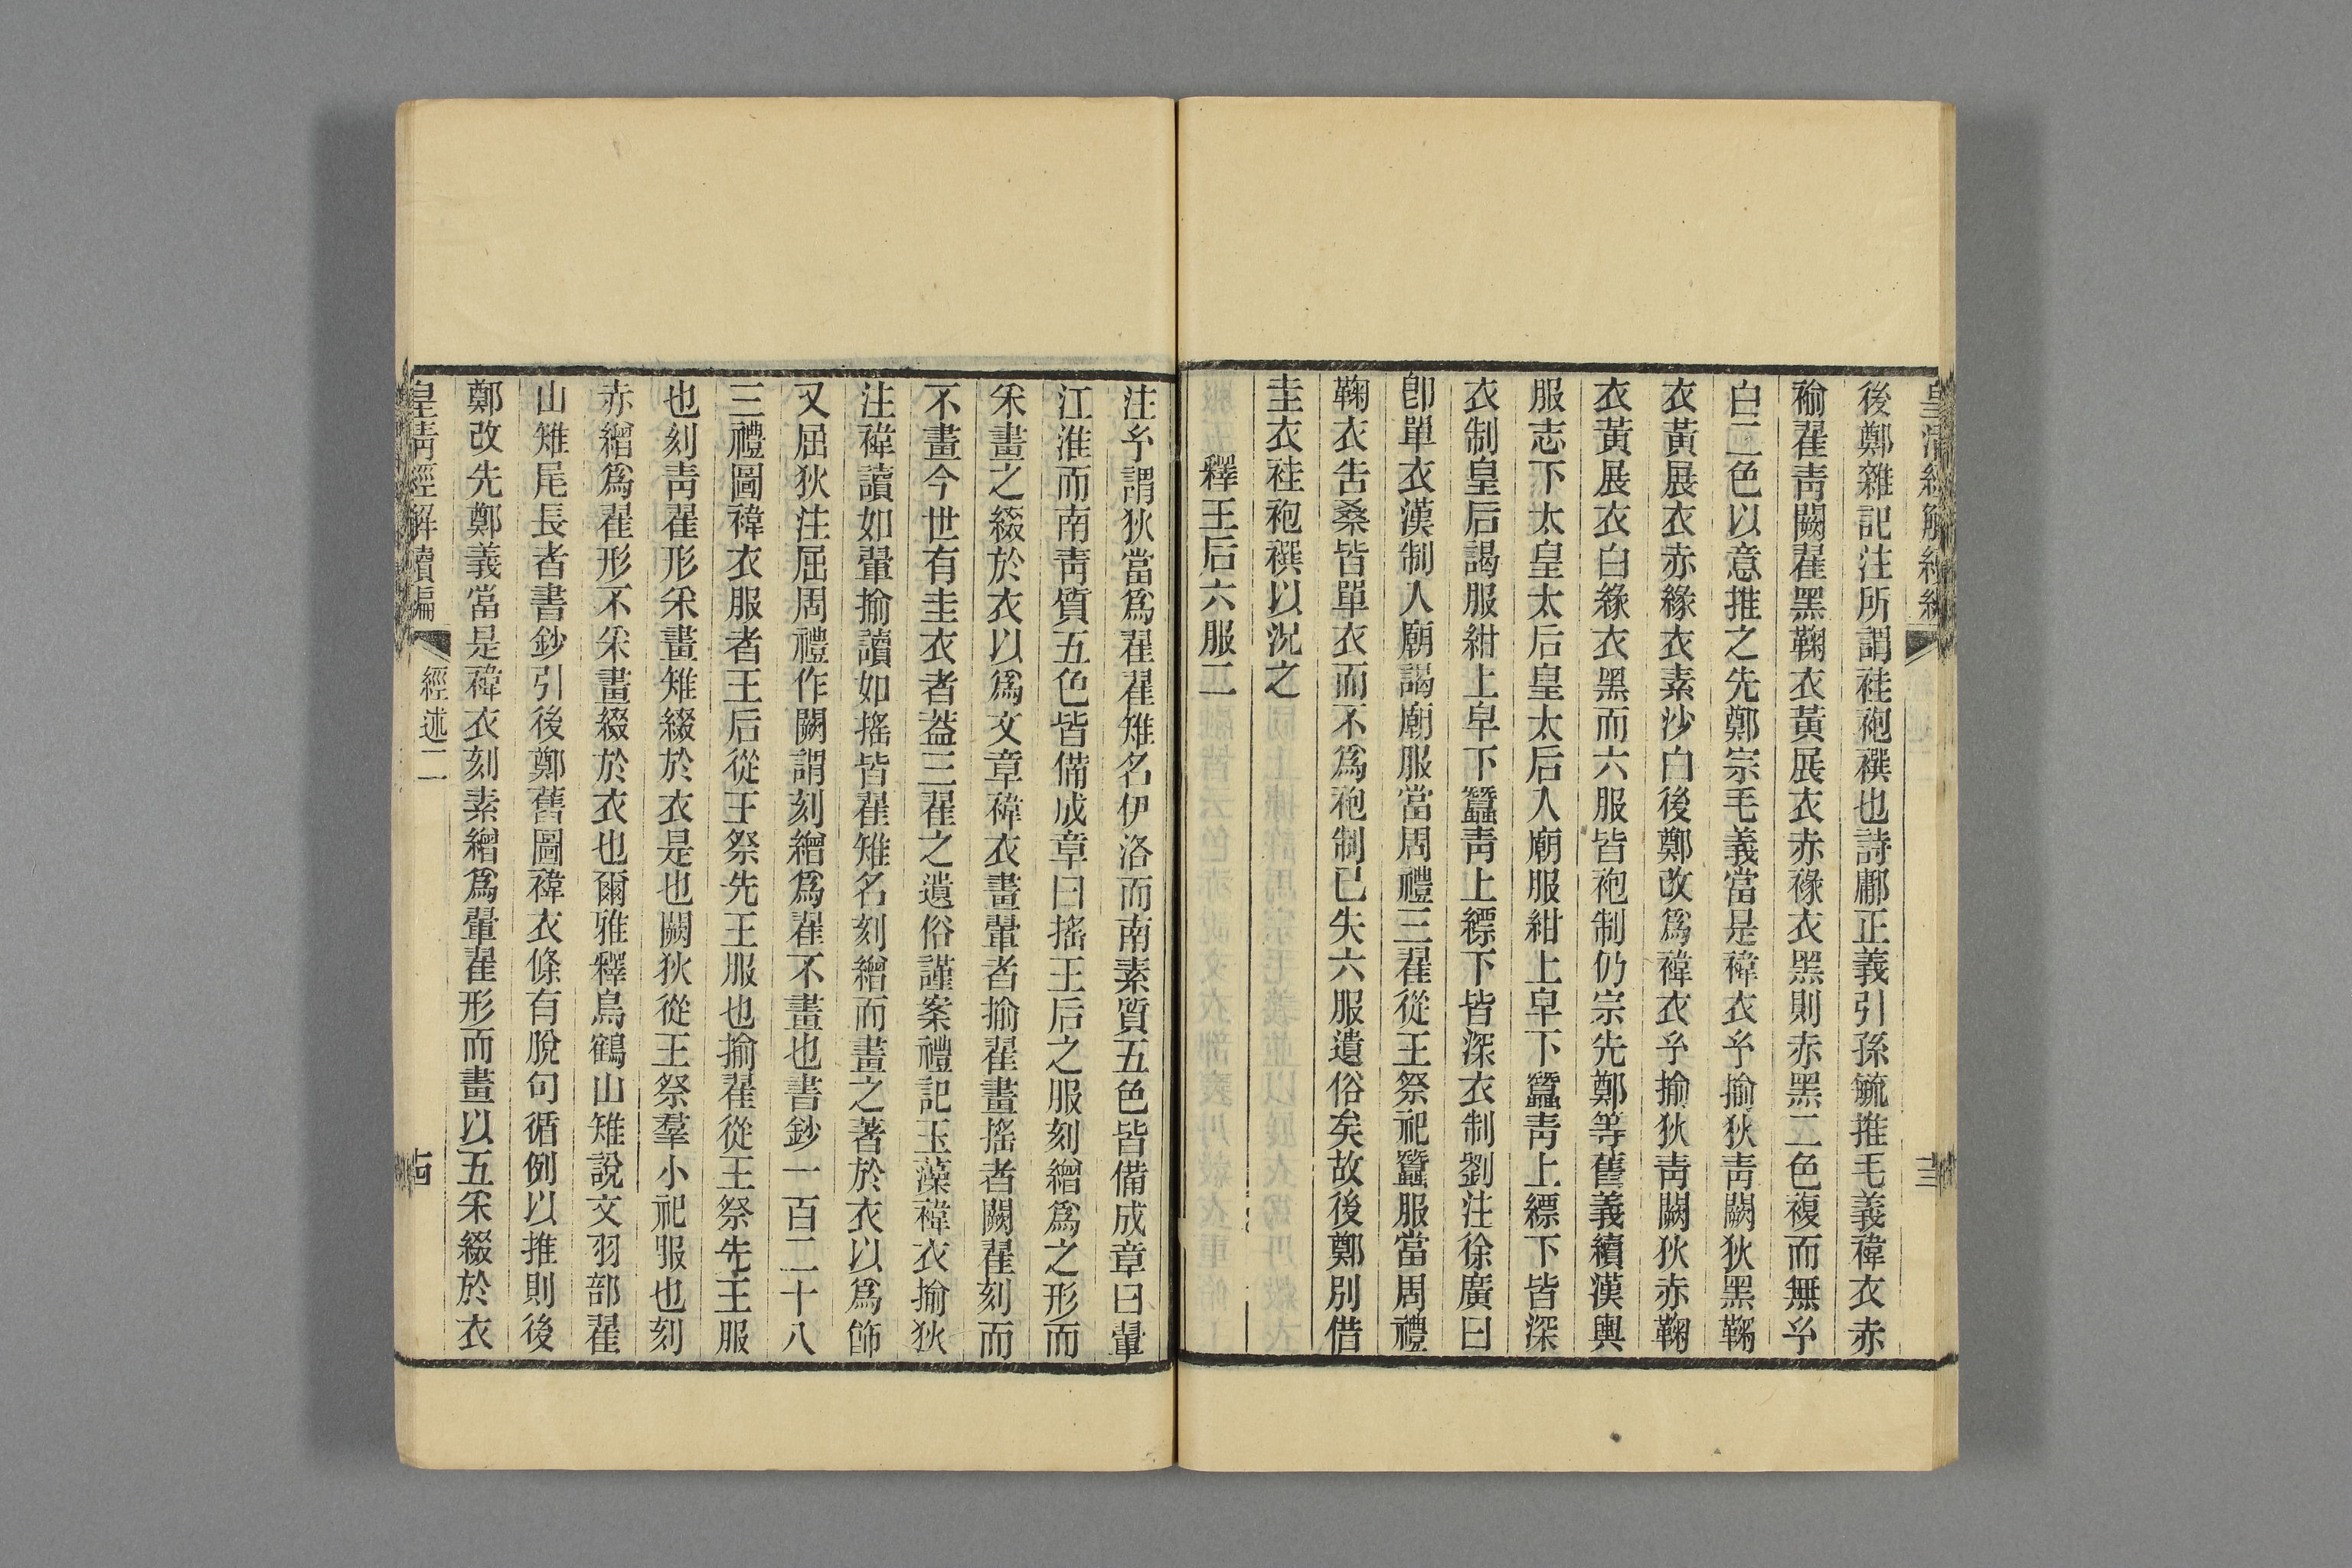 皇清經解續編
十三
後鄭雜記注所謂袿袍襈也詩鄘正義引孫毓推毛義褘衣赤
褕翟青闕翟黑鞠衣黃展衣赤褖衣黑則赤黑二色複而無㐧
白二色以意推之先鄭宗毛義當是褘衣㐧揄狄青闕狄黑鞠
衣黃展衣赤緣衣素沙白後鄭改爲褘衣㐧揄狄青闕狄赤鞠
衣黃展衣白緣衣黑而六服皆袍制仍宗先鄭等舊義續漢輿
服志下太皇太后皇太后入廟服紺上皁下蠶青上縹下皆深
衣制皇后謁服紺上皁下蠶青上縹下皆深衣制劉注徐廣曰
卽單衣漢制入廟謁廟服當周禮三翟從王祭祀蠶服當周禮
鞠衣告桑皆單衣而不爲袍制已失六服遺俗矣故後鄭別借
圭衣袿袍襈以況之
釋王后六服二
注㐧謂狄當爲翟翟雉名伊洛而南素質五色皆備成章曰翬
江淮而南青質五色皆備成章曰搖王后之服刻繒爲之形而
采畫之綴於衣以爲文章褘衣畫翬者揄翟畫搖者闕翟刻而
不畫今世有圭衣者葢三翟之遺俗謹案禮記玉藻褘衣揄狄
注褘讀如翬揄讀如搖皆翟雉名刻繒而畫之著於衣以爲飾
又屈狄注屈周禮作闕謂刻繒爲翟不畫也書鈔一百二十八
三禮圖褘衣服者王后從王祭先王服也揄翟從王祭先王服
也刻青翟形采畫雉綴於衣是也闕狄從王祭羣小祀服也刻
赤繒爲翟形不采畫綴於衣也爾雅釋鳥鸐山雉說文羽部翟
山雉尾長者書鈔引後鄭舊圖褘衣條有脫句循例以推則後
鄭改先鄭義當是褘衣刻素繒爲翬翟形而畫以五采綴於衣
皇清經解續編
經述二
十四